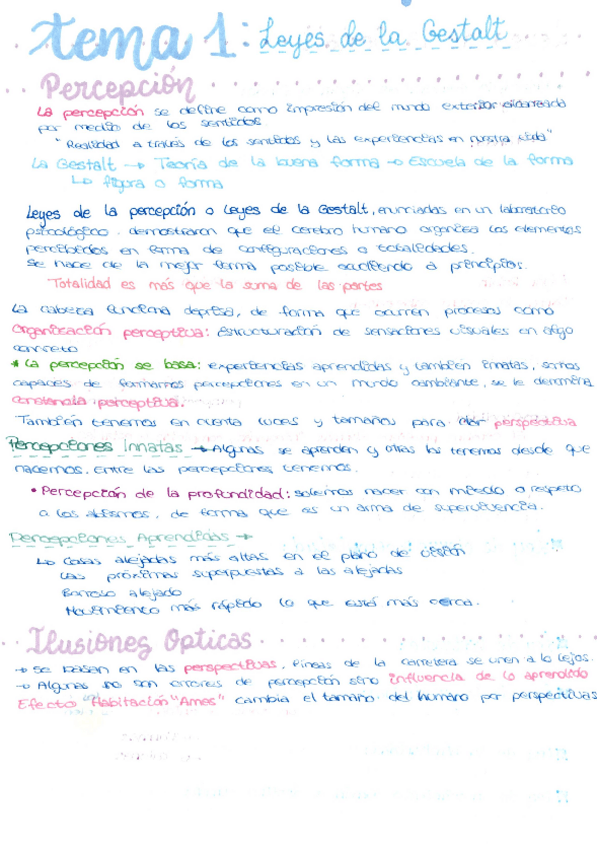 tema 1: Leyes de la Gestalt
Percepción
La percepción se define como impresión del mundo exterior
por medio de los sentidos
"Realidad a través de los sentidos y las experiencias en nuestra vida"
La Gestalt → Teoría de la buena forma → Escuela de la forma
↳ figura o forma
Leyes de la percepción o Leyes de la Gestalt, enunciadas en un laboratorio
psicológico. demostraron que el cerebro humano organiza los elementos
percibidos en forma de configuraciones o totalidades.
Se hace de la mejor forma posible acudiendo a principios:
Totalidad es más que la suma de las partes
La cabeza funciona deprisa, de forma que ocurren procesos como
Organización perceptiva: estructuración de sensaciones visuales en algo
concreto
* La percepción se basa: experiencias aprendidas y también innatas, somos
capaces de formarnos percepciones en un mundo cambiante, se le denomina
constancia perceptiva.
También tenemos en cuenta luces y tamaños para dar perspectiva
Percepciones Innatas → Algunas se aprenden y otras las tenemos desde que
nacemos. entre las percepciones tenemos.
• Percepción de la profundidad: solemos nacer con miedo o respeto
a los abismos, de forma que es un arma de supervivencia.
Percepciones Aprendidas →
↳ Cosas alejadas más altas en el plano de visión
Las próximas superpuestas a las alejadas
Borroso alejado
Movimiento más rápido lo que está más cerca.
Ilusiones Opticas
→ Se basan en las perspectivas, líneas de la carretera se unen a lo lejos.
→ Algunas no son errores de percepción sino influencia de lo aprendido
Efecto "Habitación "Ames" cambia el tamaño del humano por perspectivas